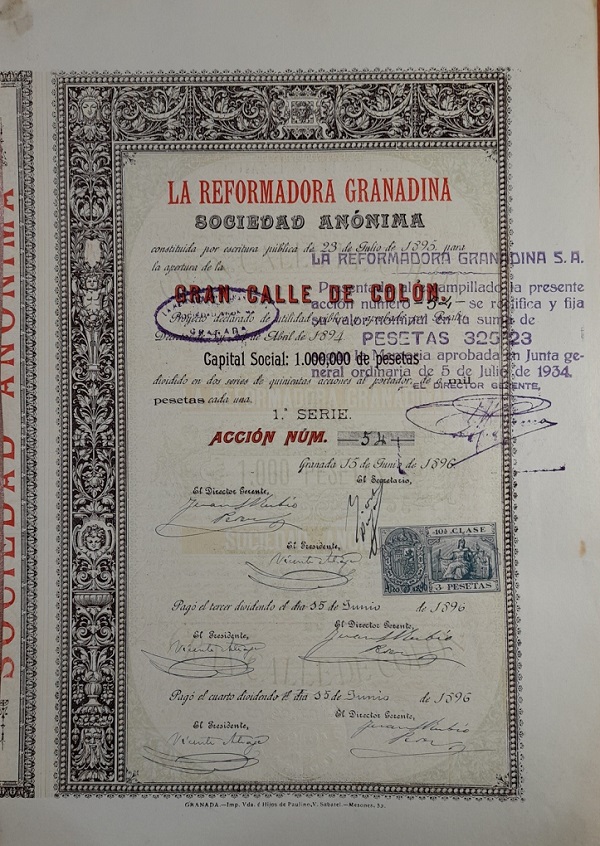 SOCIEDAD ANÓNIMA
LA REFORMADORA GRANADINA
SOCIEDAD ANÓNIMA
constituida por escritura pública de 23 de Julio de 1895 para
la apertura de la
GRAN CALLE DE COLÓN
Proyecto declarado de utilidad pública y aprobado por Real
de Abril de 1894
Capital Social: 1.000.000 de pesetas
dividido en dos series de quinientas acciones al portador, de á mil
pesetas cada una.
1.ª SERIE.
ACCIÓN NÚM. 524
GRANADA
LA REFORMADORA GRANADINA S.A.
Presentada al estampillado la presente
acción número 524 se rectifica y fija
su valor nominal en la suma de
PESETAS 325'23
Memoria aprobada en Junta ge-
neral ordinaria de 5 de Julio de 1934.
EL DIRECTOR GERENTE,
Granada 15 de Junio de 1896
El Secretario,
El Director Gerente,
El Presidente,
10ª CLASE
3 PESETAS
Pagó el tercer dividendo el día 15 de Junio de 1896
El Presidente,
El Director Gerente,
Pagó el cuarto dividendo el día 15 de Junio de 1896
El Presidente,
El Director Gerente,
GRANADA.—Imp. Vda. é Hijos de Paulino V. Sabatel.—Mesones, 52.